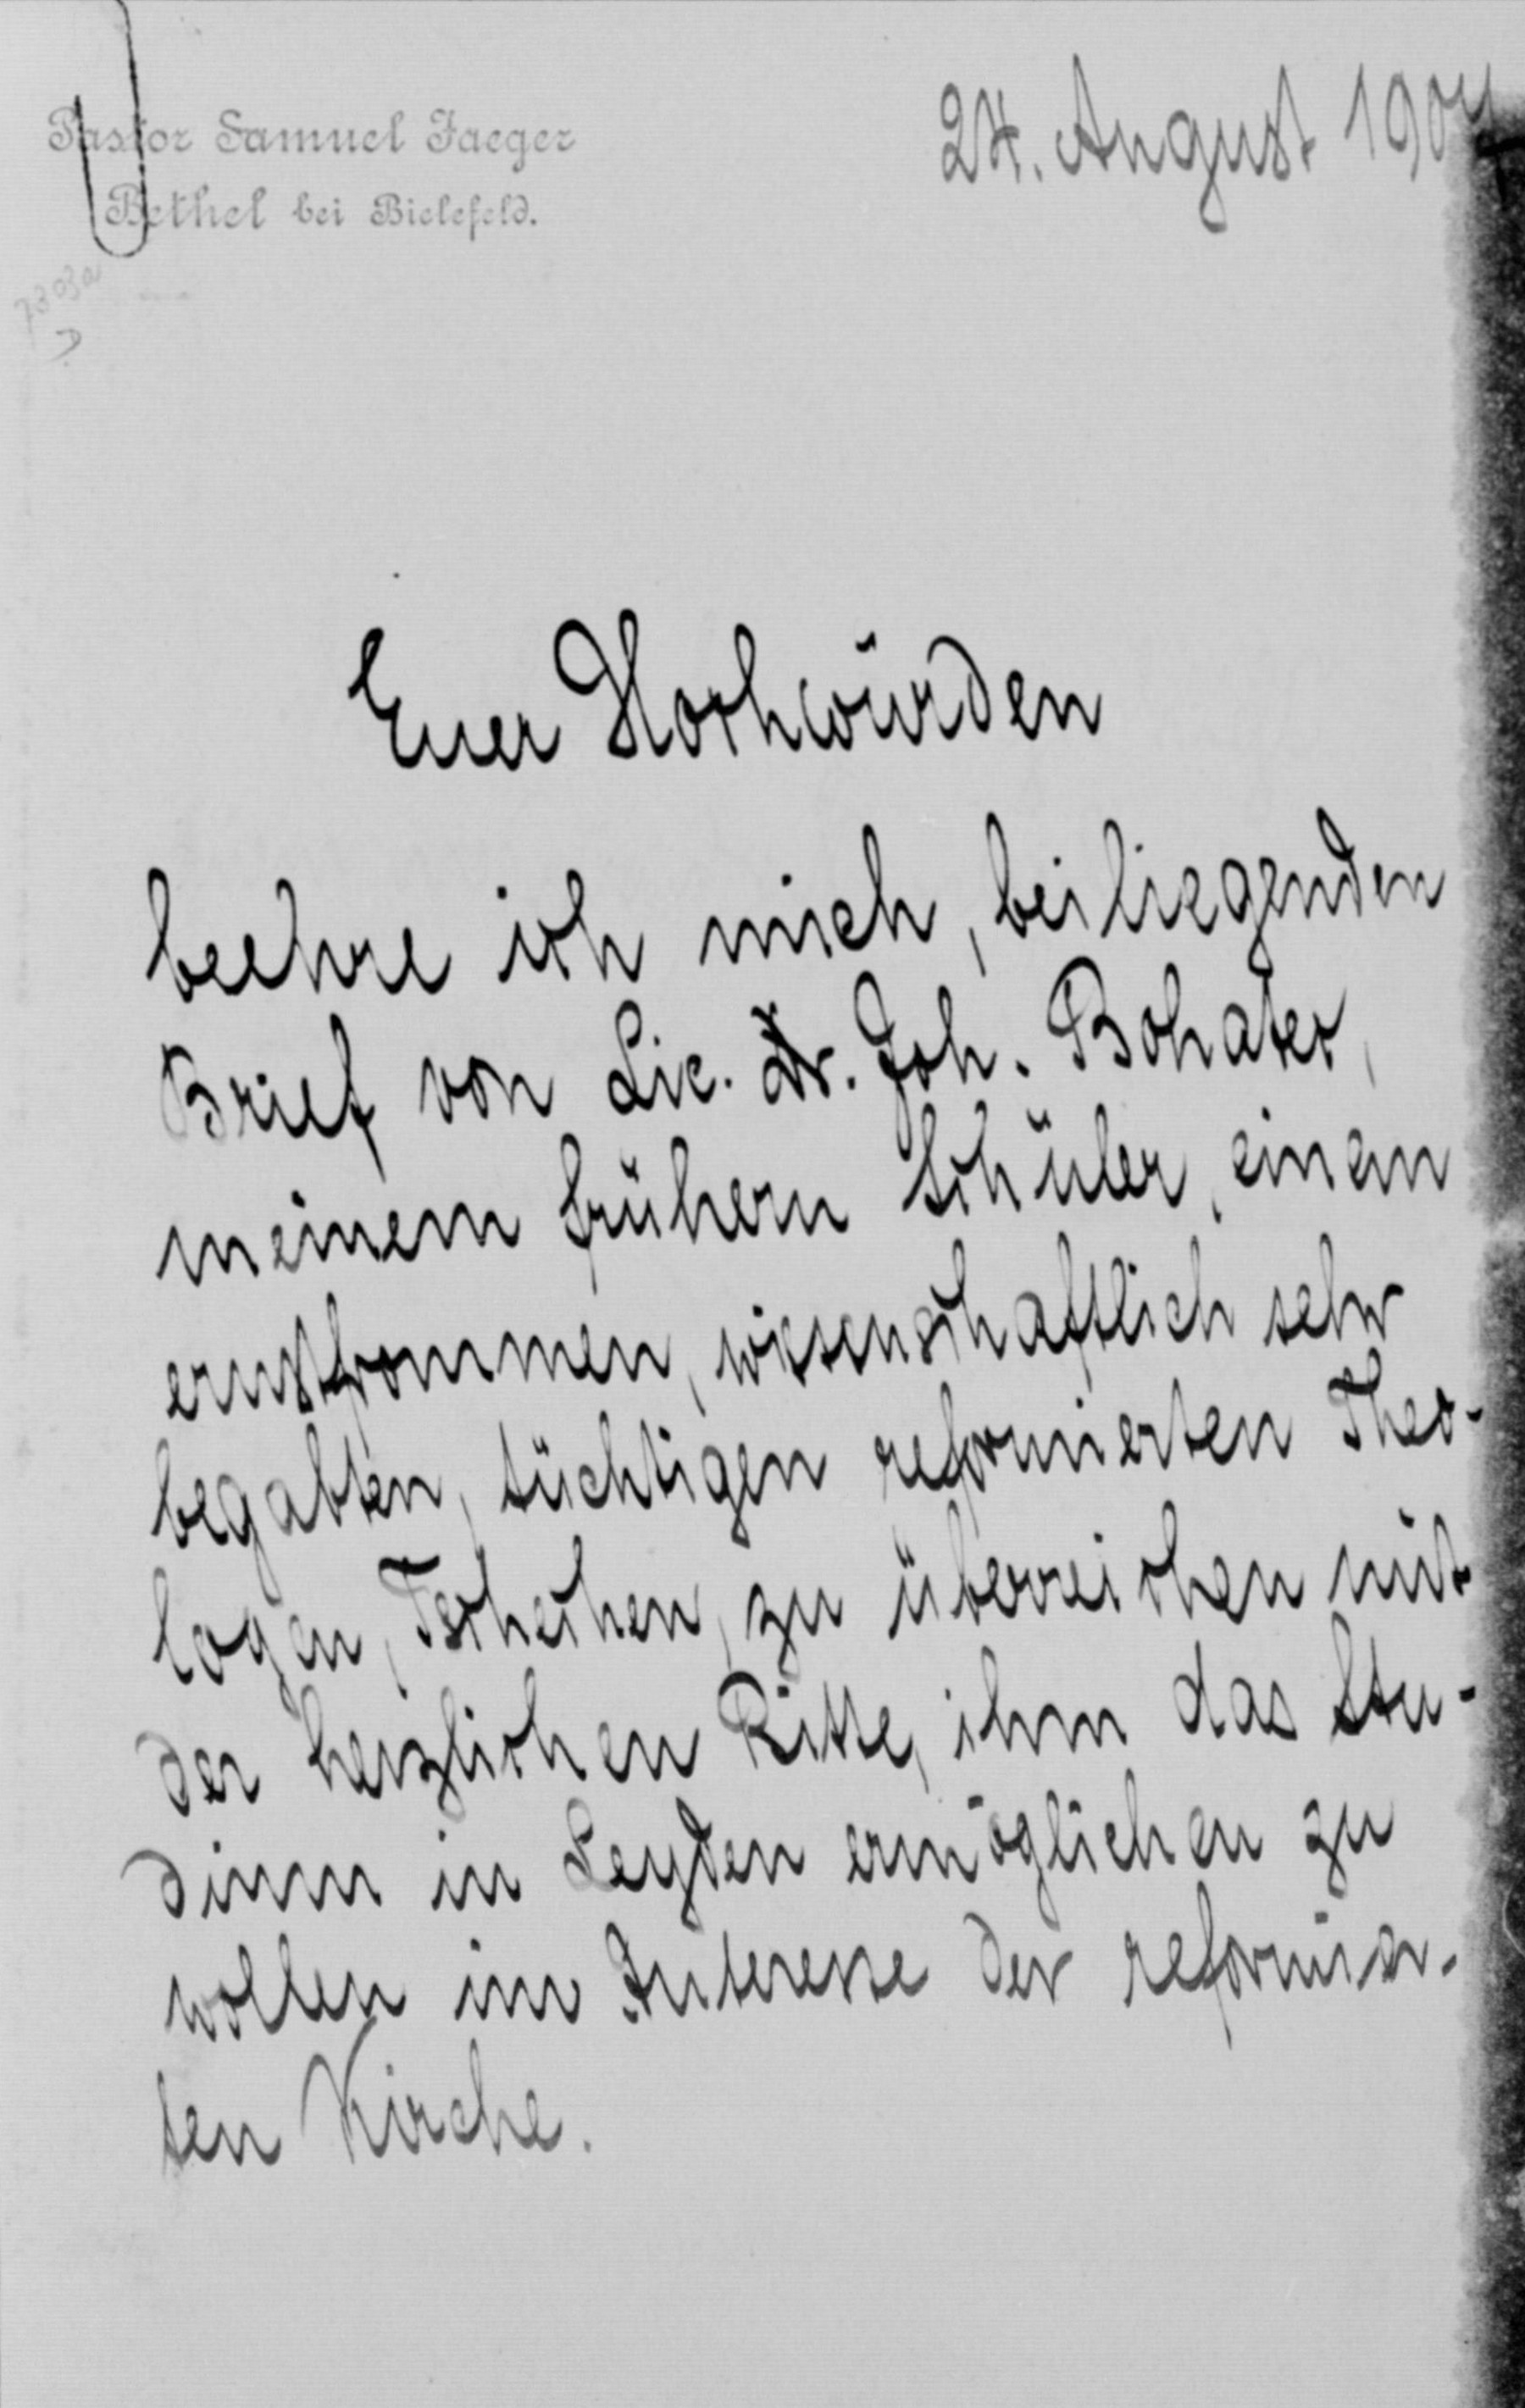 Pastor Samuel Jaeger
Bethel bei Bielefeld.
24. August 190
7303a
Euer Hochwürden
beehre ich mich, beiliegenden
Brief von Lic. Dr. Joh. Bohatec,
meinem frühern Schüler, einem
ernstfrommen, wissenschaftlich sehr
begabten, tüchtigen reformierten Theo-
logen, Tschechen, zu überreichen mit
der herzlichen Bitte, ihm das Stu-
dium in Leyden ermöglichen zu
wollen im Interesse der reformier-
ten Kirche.